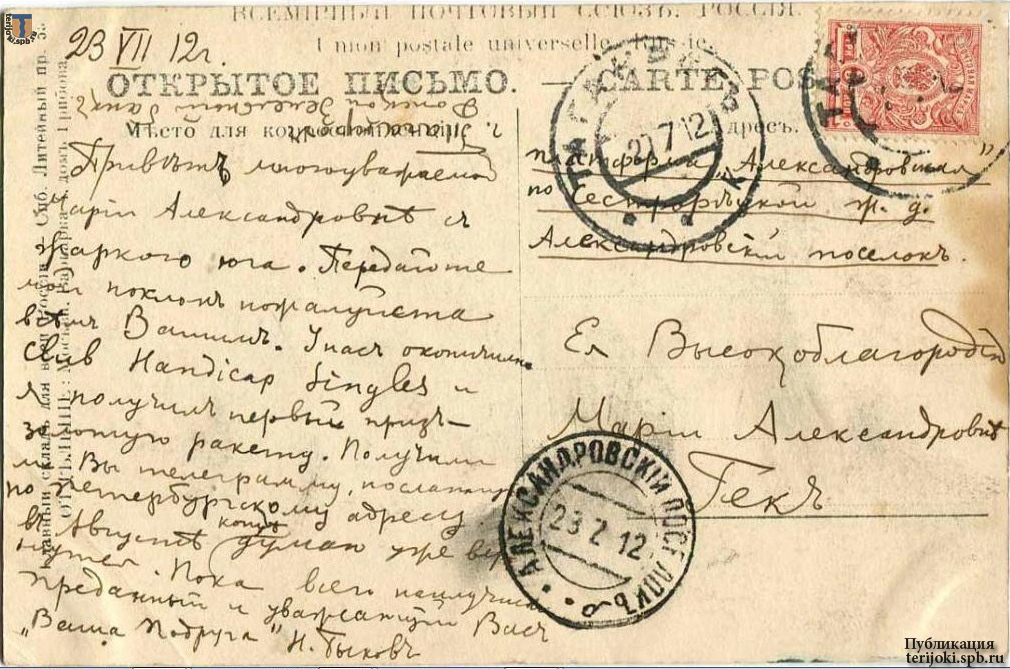 terijoki.spb.ru
ВСЕМІРНЫЙ ПОЧТОВЫЙ СОЮЗЪ. РОССІЯ.
Union postale universelle. Russie.
ОТКРЫТОЕ ПИСЬМО. — CARTE POS
Мѣсто для
дресъ.
23 VII 12 г.
Привѣтъ многоуважаемой
Маріи Александровнѣ съ
жаркого юга. Передайте
мой поклонъ пожалуйста
всѣмъ Вашимъ. У насъ окончились
Club Handicap Singles и
я получилъ первый призъ —
золотую ракету. Получили
ли Вы телеграмму, посланную
по Петербургскому адресу
въ Августѣ
думаю уже вер
нуться. Пока всего наилучшаго
преданный и уважающій Васъ
„Ваша Подруга" Н. Быковъ
г. Таганрогъ
Донской Земельный банкъ
платформа „Александровская"
по Сестрорѣцкой ж. д.
Александровскій поселокъ.
Ея Высокоблагородію
Маріи Александровнѣ
Гекъ
ТАГАНРОГЪ
20 7 12
ТАГА
АЛЕКСАНДРОВСКІЙ ПОСЕЛОКЪ
23 7 12
Главный складъ для всей Россіи: Спб. Литейный пр.
ОТДѢЛЕНІЕ: Москва, Варварка, домъ Грибова.
Публикация
terijoki.spb.ru